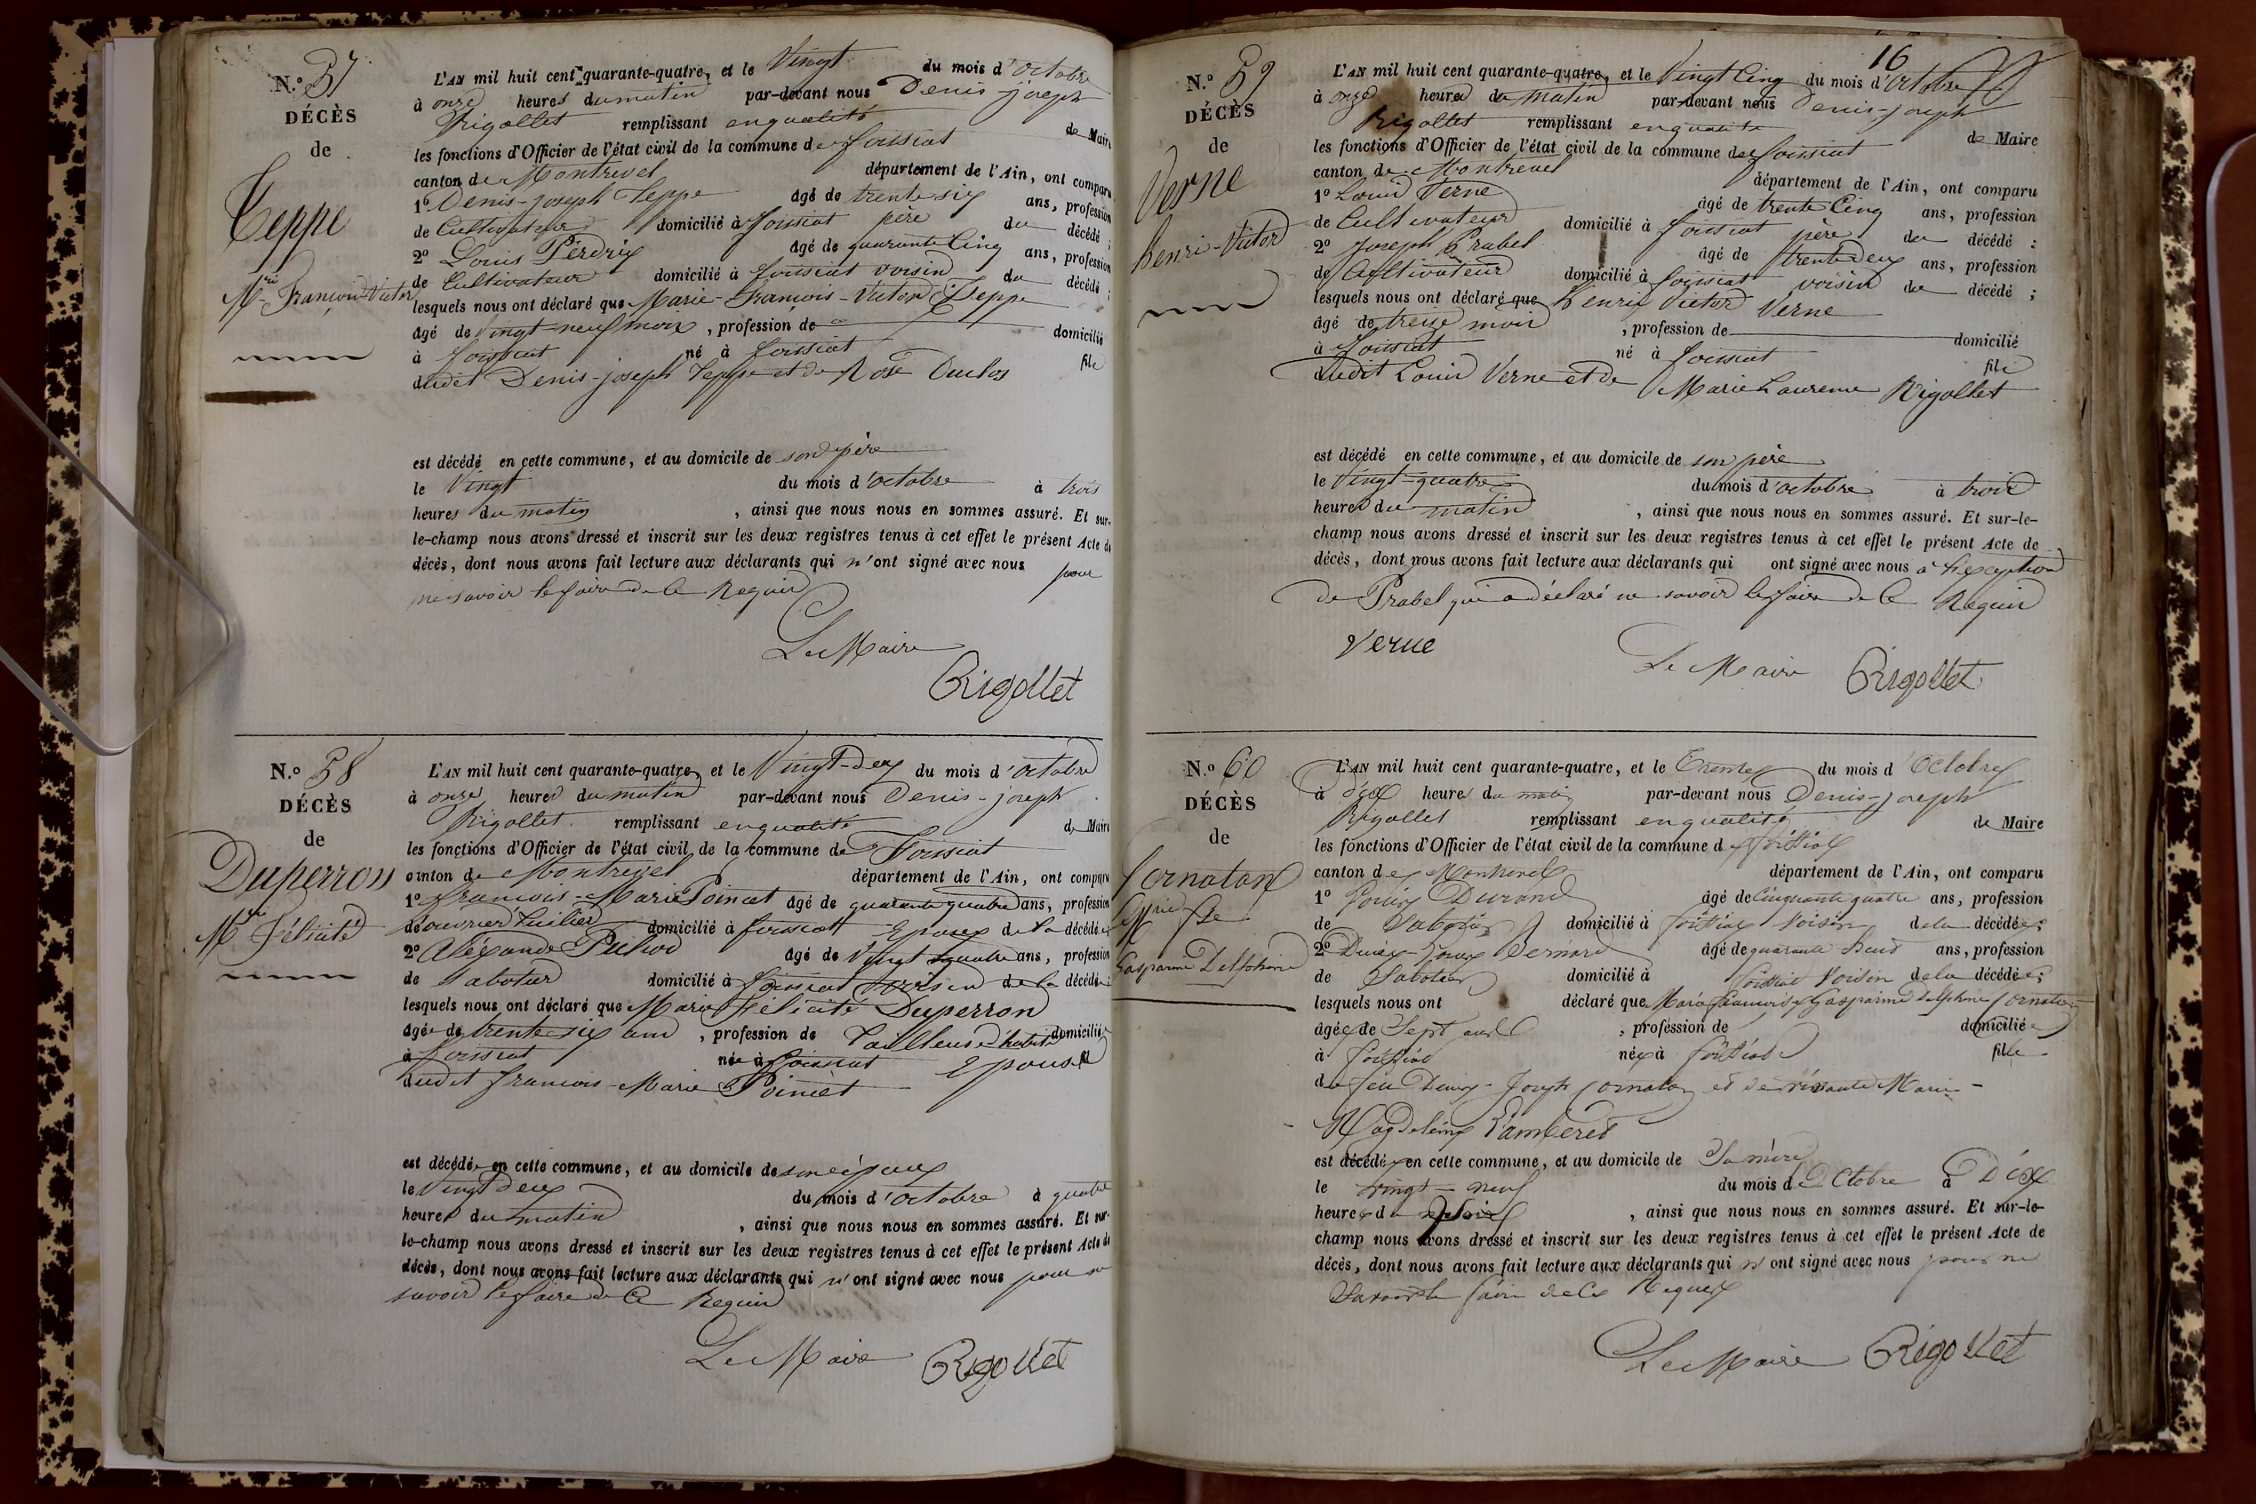 N.° 57
DÉCÈS
de
Teppe
Mrie François-Victor
L'AN mil huit cent quarante-quatre, et le Vingt du mois d'octobre
à onze heures du matin par-devant nous Denis-joseph
Rigollet remplissant en qualité de Maire
les fonctions d'Officier de l'état civil de la commune de foissiat
canton de Montrevel département de l'Ain, ont comparu
1° Denis-joseph Teppe âgé de trente six ans, profession
de Cultivateur domicilié à foissiat père du décédé ;
2° Louis Perdrix âgé de quarante Cinq ans, profession
de Cultivateur domicilié à foissiat voisin du décédé ;
lesquels nous ont déclaré que Marie-François-Victor Teppe
âgé de vingt-neuf mois, profession de domicilié
à foissiat né à foissiat fils
dudit Denis-joseph Teppe et de Rose Duclos
est décédé en cette commune, et au domicile de son père
le Vingt du mois d'octobre à trois
heures du matin, ainsi que nous nous en sommes assuré. Et sur-
le-champ nous avons dressé et inscrit sur les deux registres tenus à cet effet le présent Acte de
décès, dont nous avons fait lecture aux déclarants qui n'ont signé avec nous pour
ne savoir le faire de ce Requis
Le Maire
Rigollet
N.° 58
DÉCÈS
de
Duperron
Mrie Félicité
L'AN mil huit cent quarante-quatre, et le Vingt-deux du mois d'octobre
à onze heures du matin par-devant nous Denis-joseph
Rigollet remplissant en qualité de Maire
les fonctions d'Officier de l'état civil de la commune de Foissiat
canton de Montrevel département de l'Ain, ont comparu
1° François-Marie Poincet âgé de quarante quatre ans, profession
de ouvrier tuilier domicilié à foissiat Epoux de la décédée
2° Aléxandre âgé de Vingt quatre ans, profession
de sabotier domicilié à foissiat voisin de la décédée
lesquels nous ont déclaré que Marie Félicité Duperron
âgée de trente six ans, profession de Tailleuse d'habits domiciliée
à foissiat née à foissiat Epouse
dudit françois-Marie Poincet
est décédée en cette commune, et au domicile de son époux
le Vingt deux du mois d'octobre à quatre
heures du matin, ainsi que nous nous en sommes assuré. Et sur-
le-champ nous avons dressé et inscrit sur les deux registres tenus à cet effet le présent Acte de
décès, dont nous avons fait lecture aux déclarants qui n'ont signé avec nous pour ne
savoir le faire de ce Requis
Le Maire Rigollet
16
N.° 59
DÉCÈS
de
Verne
henri-Victor
L'AN mil huit cent quarante-quatre, et le Vingt Cinq du mois d'octobre
à onze heures du matin par-devant nous Denis-joseph
Rigollet remplissant en qualité de Maire
les fonctions d'Officier de l'état civil de la commune de foissiat
canton de Montrevel département de l'Ain, ont comparu
1° Louis Verne âgé de trente Cinq ans, profession
de Cultivateur domicilié à foissiat père du décédé ;
2° Joseph Prabel âgé de trente deux ans, profession
de Cultivateur domicilié à foissiat voisin du décédé ;
lesquels nous ont déclaré que henri Victor Verne
âgé de treize mois, profession de domicilié
à foissiat né à foissiat fils
dudit Louis Verne et de Marie Laurence Rigollet
est décédé en cette commune, et au domicile de son père
le Vingt-quatre du mois d'octobre à trois
heures du matin, ainsi que nous nous en sommes assuré. Et sur-le-
champ nous avons dressé et inscrit sur les deux registres tenus à cet effet le présent Acte de
décès, dont nous avons fait lecture aux déclarants qui ont signé avec nous à l'exception
de Prabel qui a déclaré ne savoir le faire de ce Requis
Verne
Le Maire Rigollet
N.° 60
DÉCÈS
de
Cornaton
Gasparine Delphine
L'AN mil huit cent quarante-quatre, et le Trente du mois d'Octobre
à dix heures du matin par-devant nous Denis-joseph
Rigollet remplissant en qualité de Maire
les fonctions d'Officier de l'état civil de la commune de foissiat
canton de Montrevel département de l'Ain, ont comparu
1° Durand âgé de Cinquante quatre ans, profession
de Sabotier domicilié à foissiat Voisin de la décédée ;
2° Bernard âgé de quarante huit ans, profession
de Sabotier domicilié à foissiat Voisin de la décédée ;
lesquels nous ont déclaré que Marie françoise Gasparine Delphine Cornaton
âgée de Sept ans, profession de domiciliée
à foissiat née à foissiat fille
de feu Denis-Joseph Cornaton et de vivante Marie-
Magdeleine
est décédée en cette commune, et au domicile de Sa mère
le vingt-neuf du mois d'Octobre à Dix
heures du soir, ainsi que nous nous en sommes assuré. Et sur-le-
champ nous avons dressé et inscrit sur les deux registres tenus à cet effet le présent Acte de
décès, dont nous avons fait lecture aux déclarants qui n'ont signé avec nous pour ne
Savoir le faire de ce Requis
Le Maire Rigollet